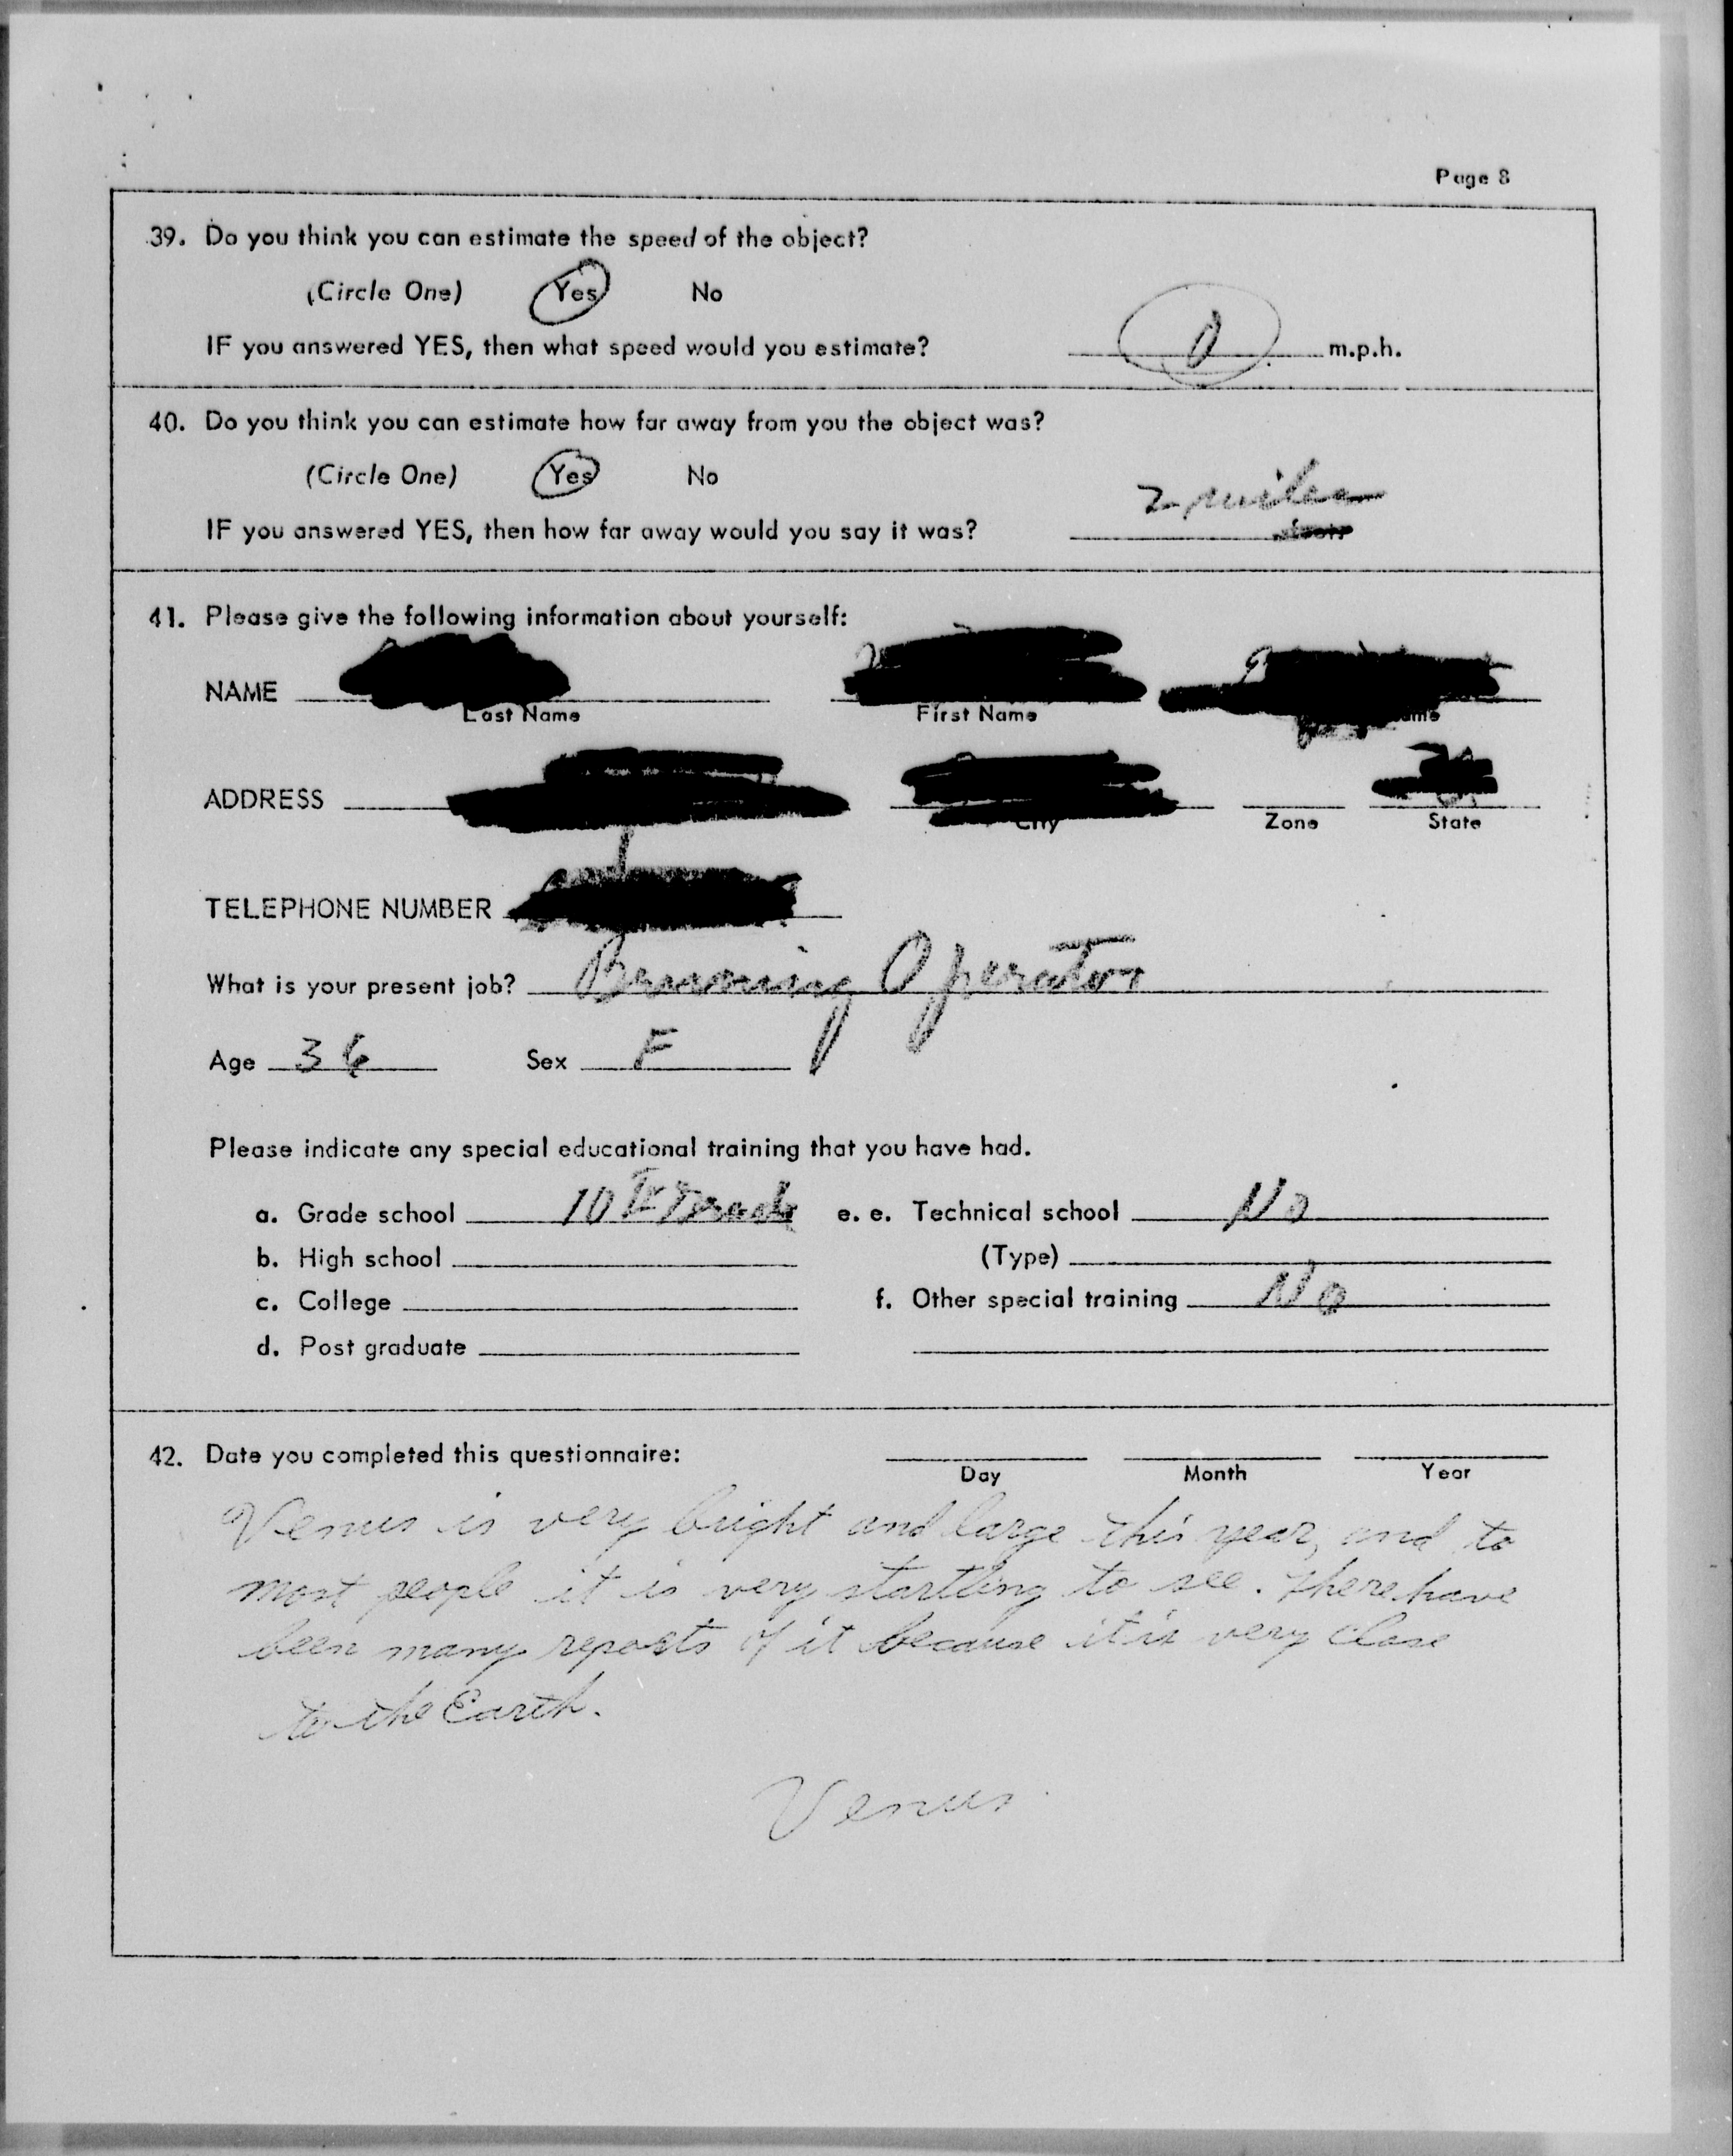 Page 8
39. Do you think you can estimate the speed of the object?
(Circle One) Yes No
IF you answered YES, then what speed would you estimate? 0 m.p.h.
40. Do you think you can estimate how far away from you the object was?
(Circle One) Yes No
2 miles
IF you answered YES, then how far away would you say it was?
41. Please give the following information about yourself:
NAME
Last Name First Name
ADDRESS
City Zone State
TELEPHONE NUMBER
What is your present job? Operator
Age 36 Sex F
Please indicate any special educational training that you have had.
a. Grade school 10th Grade e. e. Technical school No
b. High school (Type)
c. College f. Other special training No
d. Post graduate
42. Date you completed this questionnaire:
Day Month Year
Venus is very bright and large this year, and to
most people it is very startling to see. There have
been many reports of it because it is very close
to the Earth.
Venus